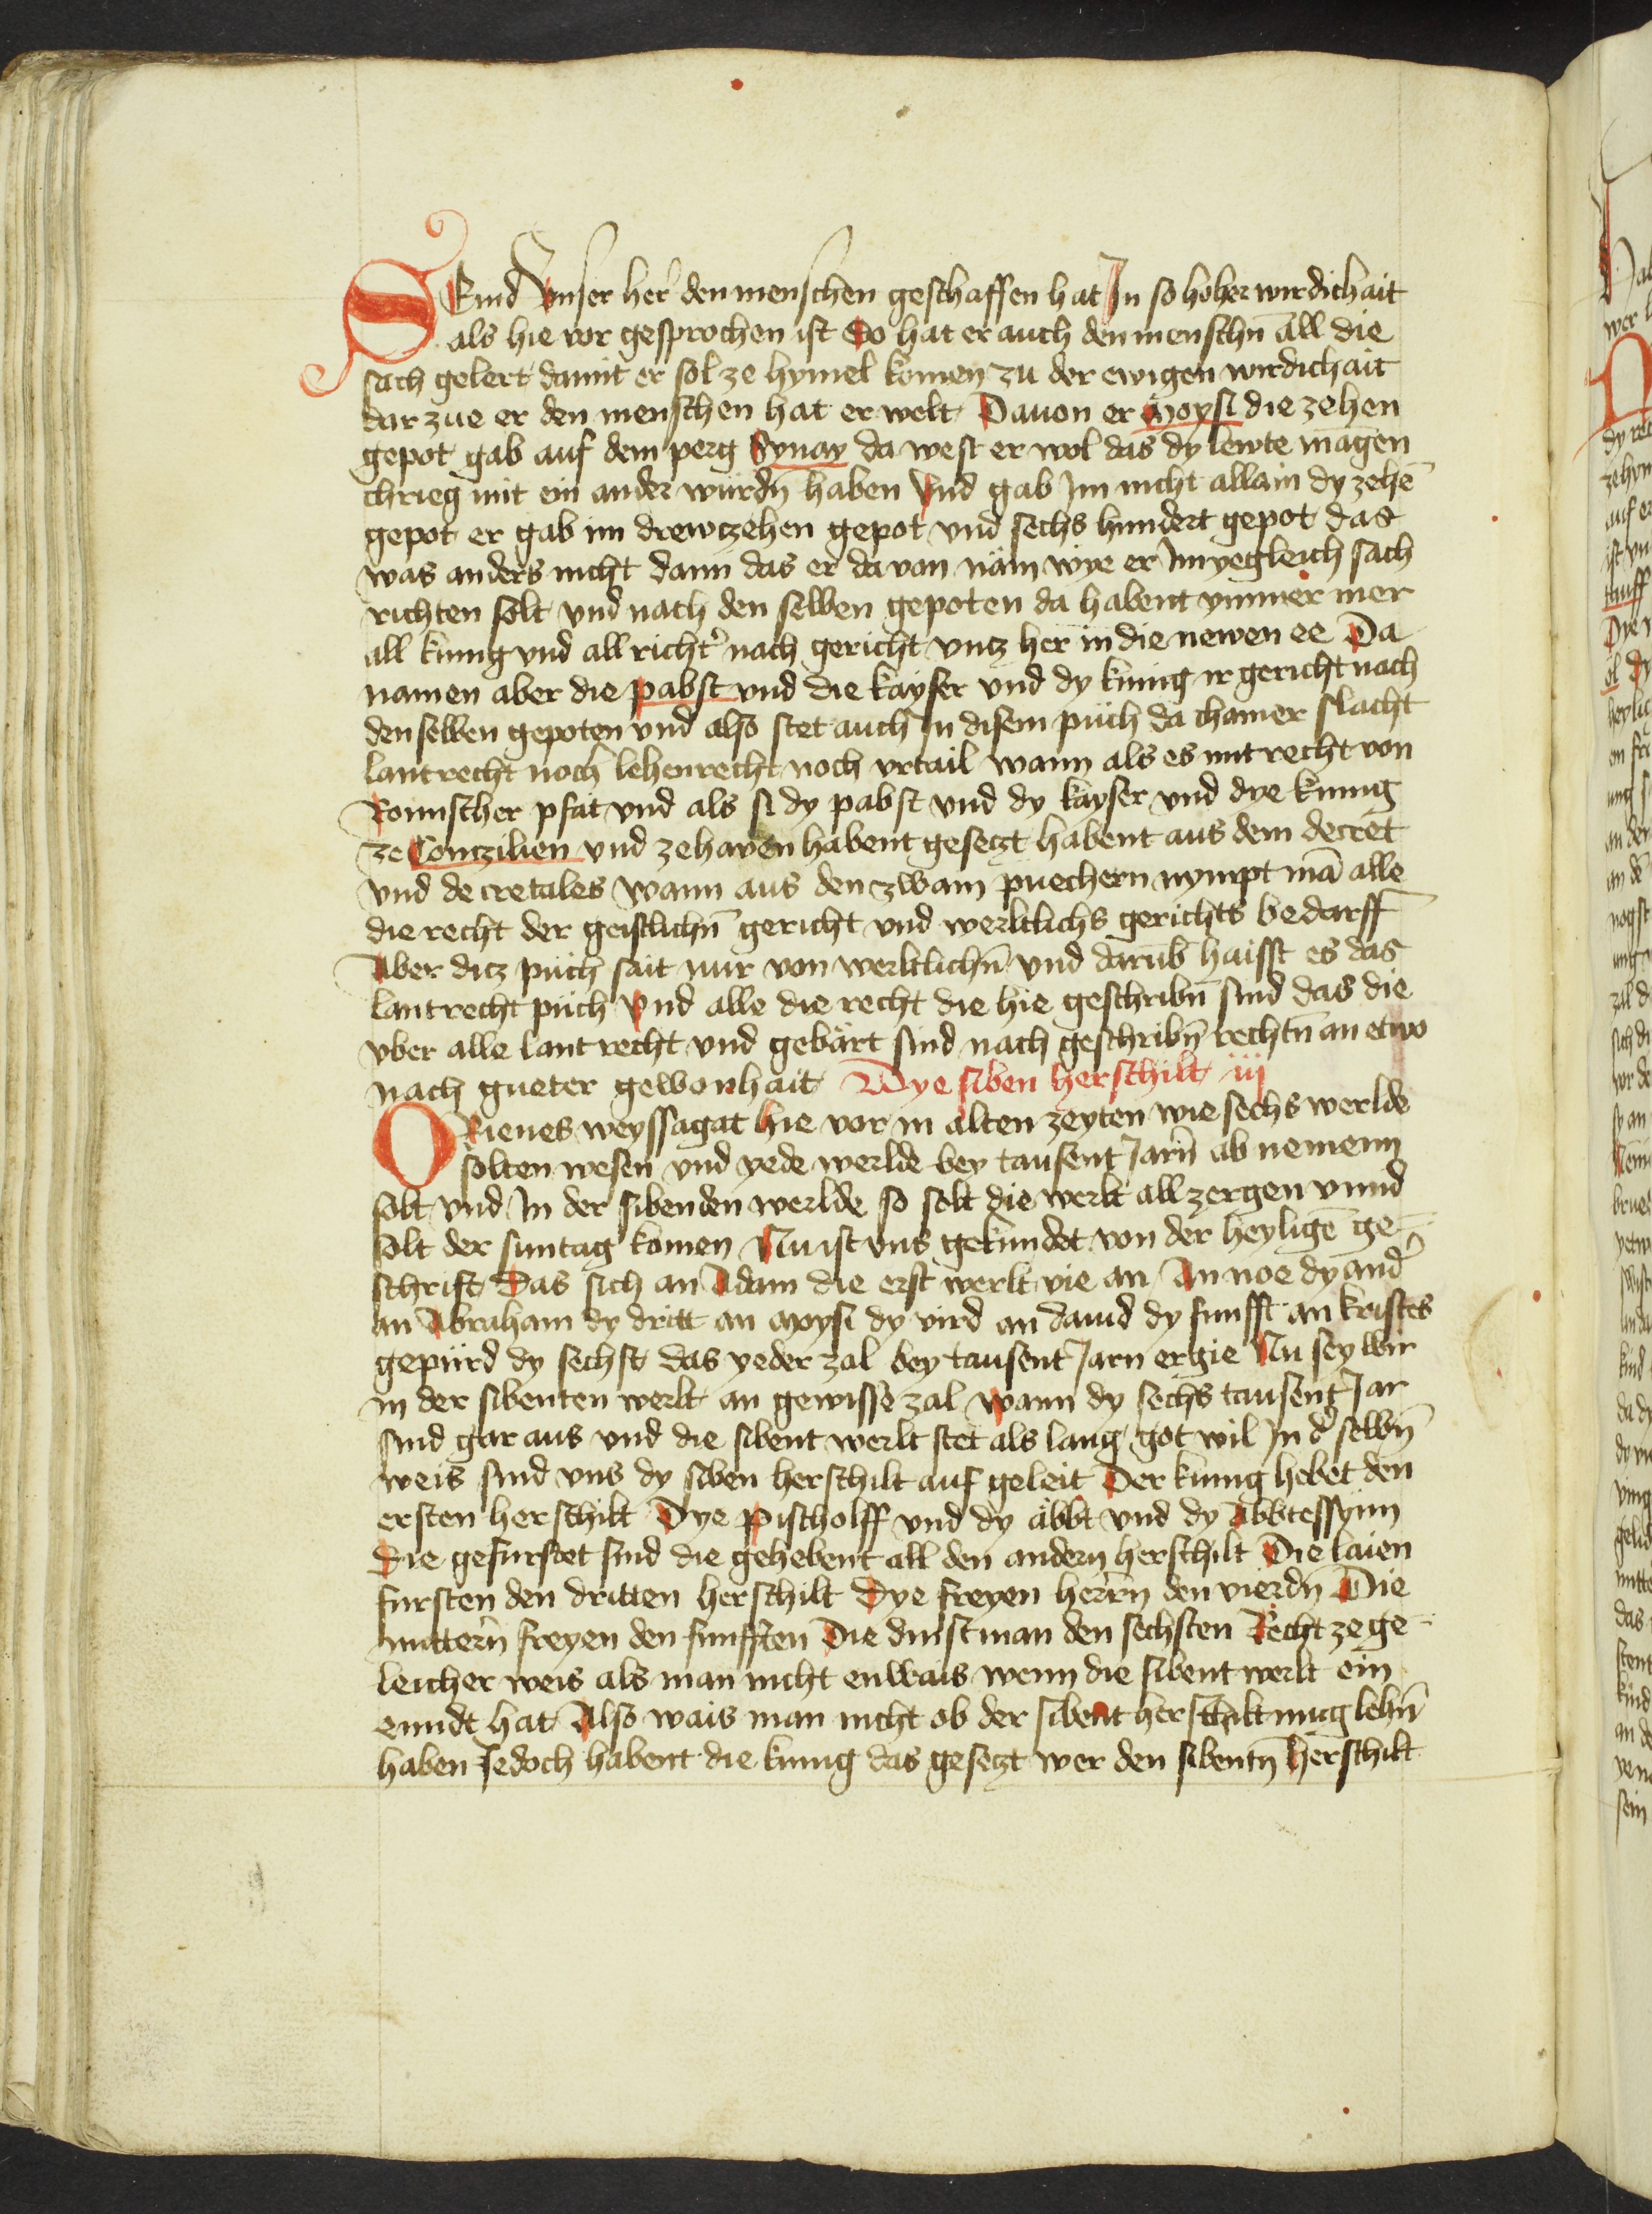 SEind Vnser her den menschen geschaffen hat In so hoher wirdichait
als hie vor gesprochen ist So hat er auch den menschn̄ all die
sach gelert damit er sol ze hymel komen zu der ewigen wirdichait
dar zue er den menschen hat er welt Dauon er Moysi die zehen
gepot gab auf dem perg Synay da west er wol das dy lewte magen
chrieg mit ein ander wurdn̄ haben Vnd gab Im nicht allain dy zehē
gepot er gab im drewzehen gepot vnd sechs hundert gepot das
was anders nicht dann das er da von näm wye er Im yegleich sach
richten solt vnd nach den selben gepoten da habent ymmer mer
all kunig vnd all richt̾ nach gericht vntz her in die newen ee Da
namen aber die pabst vnd die kayser vnd dy kunig ir gericht nach
den selben gepoten vnd also stet auch In disem puch da chainer slacht
lantrecht noch lehenrecht noch vrtail wann als es mit recht von
Romischer pfat vnd als si dy pabst vnd dy kayser vnd dye kunig
ze Conczilien vnd ze haven habent gesetzt habent aus dem decret
vnd de cretales wann aus den zwain puechern nympt mā alle
die recht der geistlichn̄ gericht vnd werltlichs gerichts bedarff
Aber ditz puch sait nur von werltlichn̄ vnd darūb haisst es das
lantrecht puch Vnd alle die recht die hie geschribn̄ sind das die
vber alle lant recht vnd gebärt sind nach geschribn̄ rechtn̄ an etwo
nach gueter gewonhait Dye siben herschilt iij
ORienes weyssagat hie vor in alten zeyten wie sechs werlde
solten wesen vnd yede werlde bey tausent Jarn̄ ab nemenn
solt vnd In der sibenden werlde so solt die werlt all zergen vnnd
solt der suntag komen Nu ist vns gekundet von der heyligē ge-
schrift Das sich an Adam die erst werlt vie an An noe dy and̾
an Abraham dy dritt an moysi dy vird an dauid dy funfft an kristes
gepürd dy sechst das yeder zal bey tausent Jarn ergie Nu sey wir
in der sibenten werlt an gewisse zal wann dy sechs tausent Jar
sind gar aus vnd die sibent werlt stet als lang got wil In d̾ selbn̄
weis sind vns dy siben herschilt auf geleit Der kunig hebet den
ersten herschilt Dye pischolff vnd dy äbbt vnd dy Äbbtessynn
Die gefurstet sind die gehebent all den andern herschilt Die laien
fursten den dritten herschilt Dye freyen herrn̄ den vierdn̄ Die
mittern̄ freyen den funfften Die dinstman den sechsten Recht ze ge-
leicher weis als man nicht enwais wenn die sibent werlt ein
ennde hat Also wais man nicht ob der sibent herschilt mug lehn̄
haben Jedoch habent die kunig das gesetzt wer den sibentn̄ herschilt